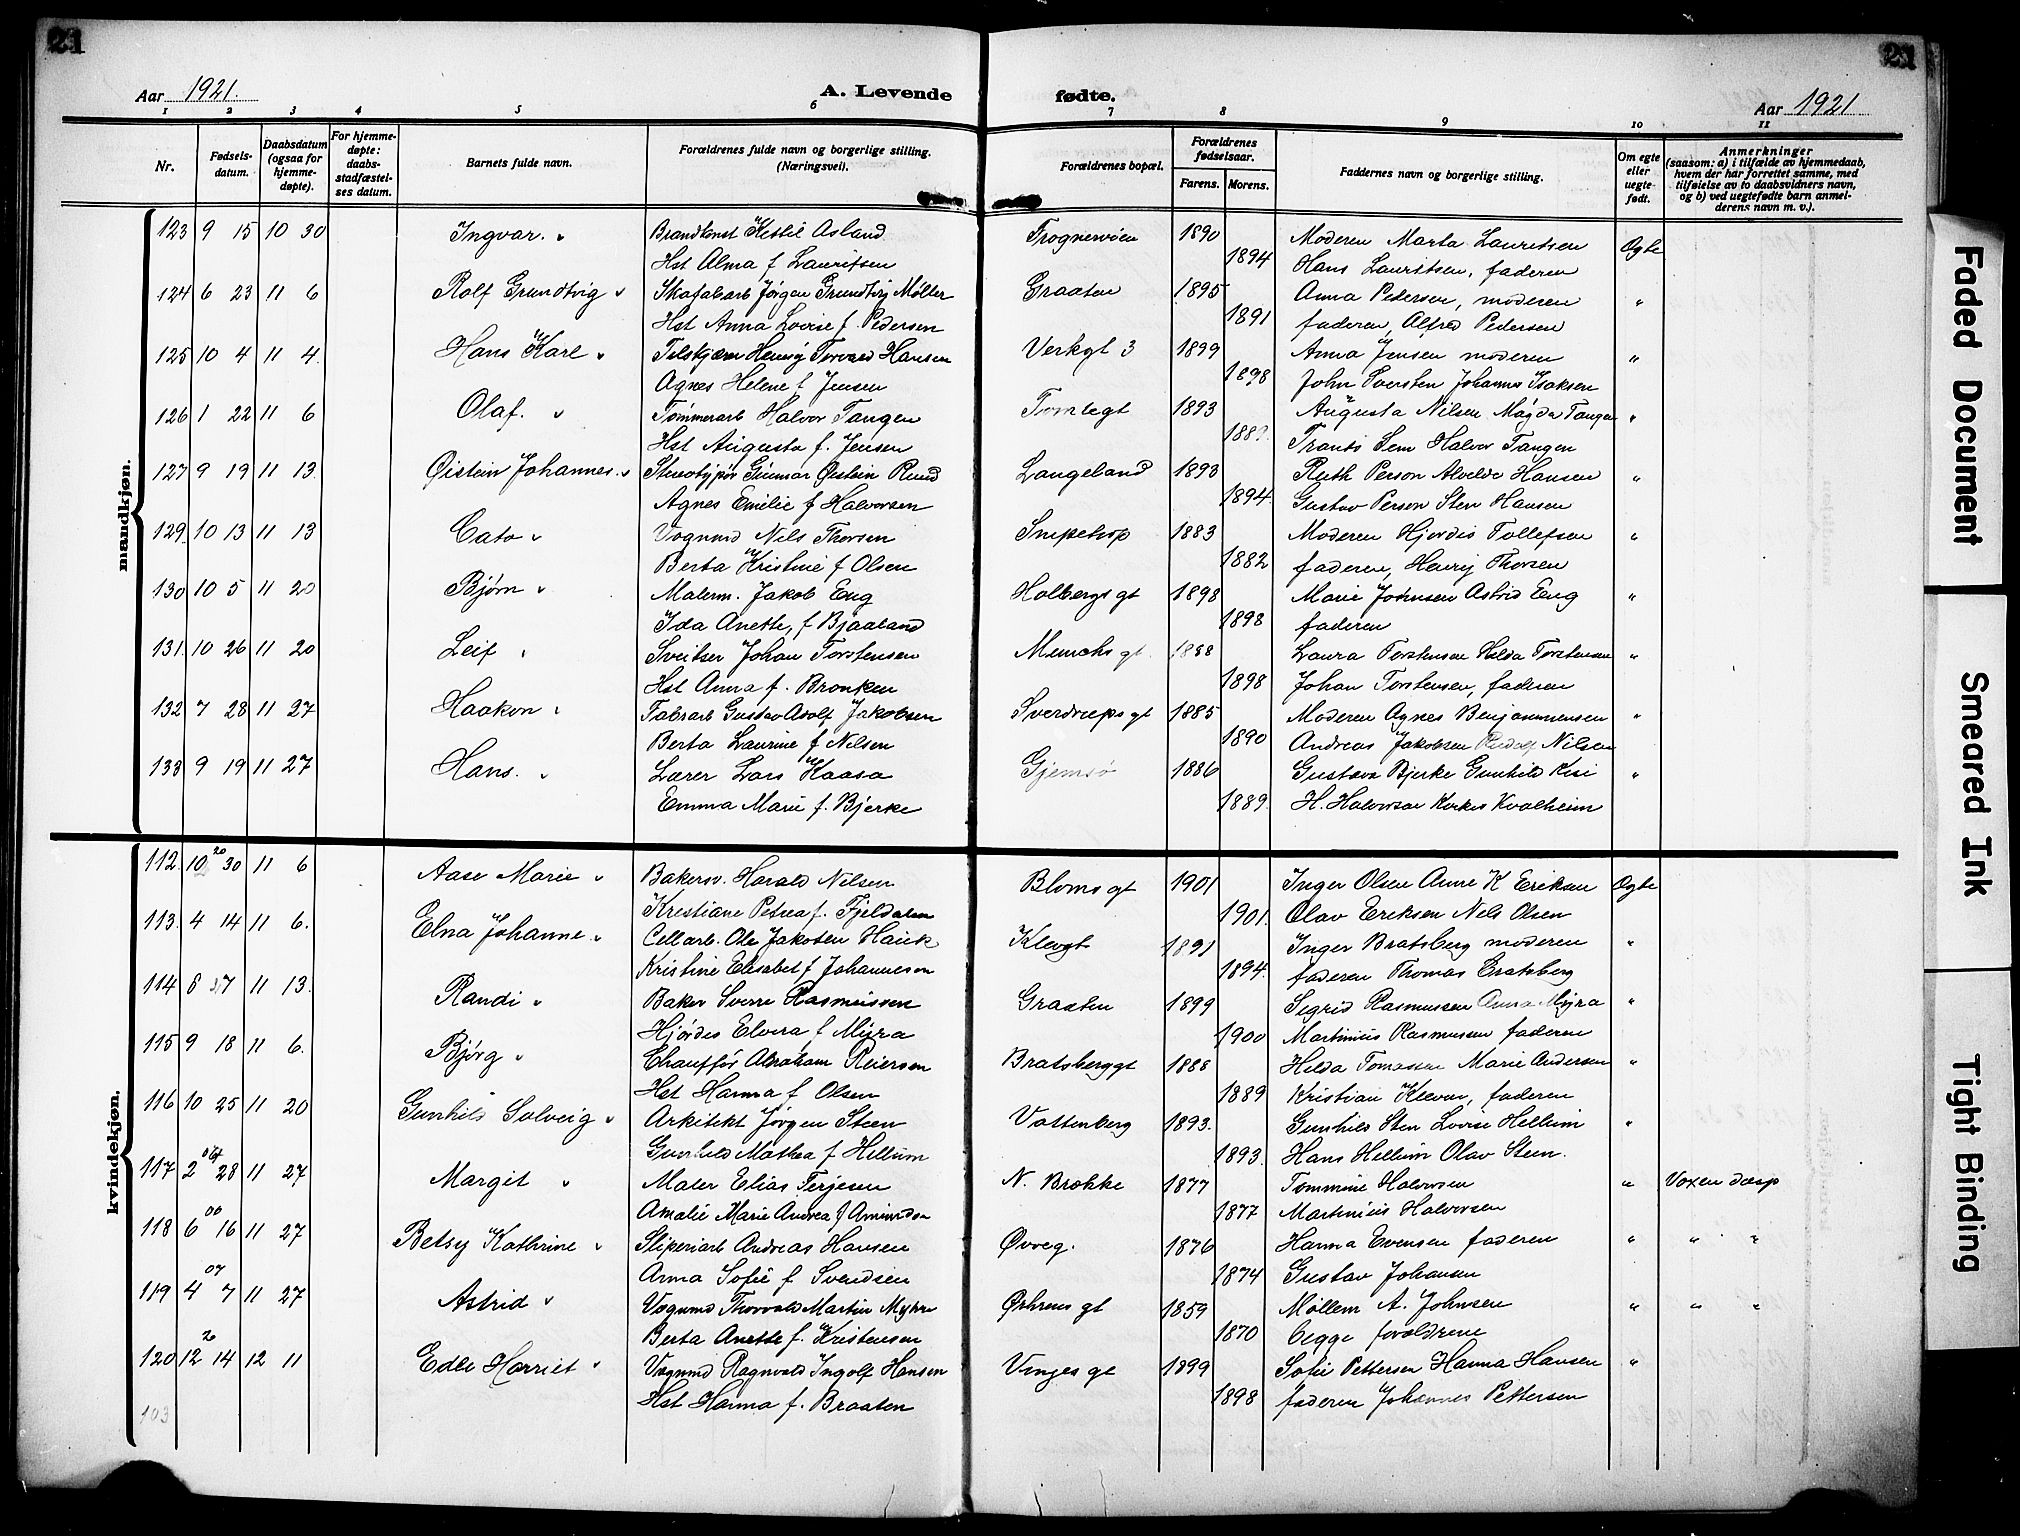 21
21
Aar 1921.
A. Levende
fødte.
Aar 1921
1 2 3 4 5 6 7 8 9 10 11
Nr.
Fødsels-datum.
Daabsdatum (ogsaa for hjemme-døpte).
For hjemme-døpte: daabs-stadfæstel-ses datum.
Barnets fulde navn.
Forældrenes fulde navn og borgerlige stilling. (Næringsvei).
Forældrenes bopæl.
Forældrenes fødselsaar.
Farens. Morens.
Faddernes navn og borgerlige stilling.
Om egte eller uegte-født.
Anmerkninger (saasom: a) i tilfælde av hjemmedaab, hvem der har forrettet samme, med tilføielse av to daabsvidners navn, og b) ved uegtefødte barn anmel-derens navn m. v.).
mandkjøn.
123 9 15 10 30 Ingvar. Brandkonst Kettil Asland Trognerveien 1890 Moderen Marta Lauritsen Egte
Hst Alma f Lauritsen 1894 Hans Lauritsen, faderen
124 6 23 11 6 Rolf Grundtvig Skofabarb Jørgen Grundtvig Møller Graaten 1895 Anna Pedersen, moderen "
Hst Anna Lovise f. Pedersen 1891 faderen, Alfred Pedersen
125 10 4 11 4. Hans Karl Henry Torvald Hansen Verkgt 3 1899 Anna Jensen moderen "
Agnes Helene f Jensen 1898 John Sversten Johannes Isaksen
126 1 22 11 6 Olaf. Tømmerarb Halvor Tangen Tomtegt 1893 Augusta Nilsen Magda Tangen "
Hst Augusta f. Jensen Frants Sem Halvor Tangen
127 9 19 11 13. Øistein Johannes. Stereotypør Gunnar Øistein Ruud Langeland 1893 Ruth Person Alvilde Hansen "
Agnes Emilie f Halvorsen 1894 Gustav Person Sten Hansen
129. 10 13 11 13 Cato Vognmd Nils Thorsen Snipetorp 1883 Moderen Hjørdis Tollefsen "
Berta Kristine f Olsen 1882 faderen, Henry Thorsen
130 10 5 11 20 Bjørn Malerm. Jakob Eng Holbergs gt 1898 Marie Johnsen Astrid Eng "
Ida Anette, f Bjaaland 1898 faderen
131. 10 26 11 20 Leif Sveitser Johan Torstensen Munchs gt. 1888 Laura Torstensen Hilda Torstensen "
Hst Anna f. Bronken 1898 Johan Torstensen, faderen
132 7 28 11 27 Haakon Fabrarb Gustav Adolf Jakobsen Sverdrups gt 1885 Moderen Agnes Benjaminsen "
Berta Laurine f Nilsen 1890 Andreas Jakobsen Rudolf Nilsen
133 9 19 11 27 Hans. Lærer Lars Kaasa Gjemsø 1886 Gustava Bjerke Gunhild "
Emma Marie f. Bjerke 1889. H. Halvorsen Kvalheim
kvindekjøn.
112. 10 20 30 11 6 Aase Marie Bakersv. Harald Nilsen Bloms gt 1901 Inger Olsen Anne K Eriksen Egte
Kristiane Petrea f. Fjeldalen 1901. Olav Eriksen Nels Olsen
113. 4 14 11 6. Elna Johanne Cellarb. Ole Jakobsen Hauk Klevgt 1891 Inger Bratsberg moderen "
Kristine Elisabet f Johannesen 1894. faderen Thomas Bratsberg
114 8 7 11 13. Randi Baker Sverre Rasmussen Graaten 1899 Sigrid Rasmussen Anna Myra "
Hjørdis Elvira f Myra 1900 Martinius Rasmussen faderen
115 9 18 11 6. Bjørg Chauffør Abraham Reiersen Bratsberggt 1888 Hilda Tomassen Marie Andersen "
Hst Hanna f Olsen 1889 Kristian Klevar, faderen
116 10 25 11 20 Gunhild Solveig Arkitekt Jørgen Steen Vattenberg 1893. Gunhild Sten Lovise Hellum "
Gunhild Mathea f Hellum 1893. Hans Hellum Olav Steen.
117 2 04 28 11 27 Margit Maler Elias Terjesen N. Brokke 1877 Tommine Halvorsen " Voxen døp
Amalie Marie Andrea f Amundsen 1877 Martinius Halvorsen
118 6 00 16 11 27 Betsy Kathrine Sliperiarb Andreas Hansen Øvreg. 1876 Hanna Evensen faderen " " "
Anna Sofie f Svendsen 1874 Gustav Johansen
119 4 07 7 11 27 Astrid Vognmd Thorvald Martin Myhre Ørhrens gt 1859 Møllem A. Johnsen " " "
Berta Anette f. Kristensen 1870 begge forældrene
120 12 20 14 12 11 Edle Harriet Vognmd Ragnvald Ingolf Hansen Vinjes gt 1899 Sofie Pettersen Hanna Hansen "
Hst Hanna f. Braaten 1898 faderen Johannes Pettersen
103
Faded Document
Smeared Ink
Tight Binding